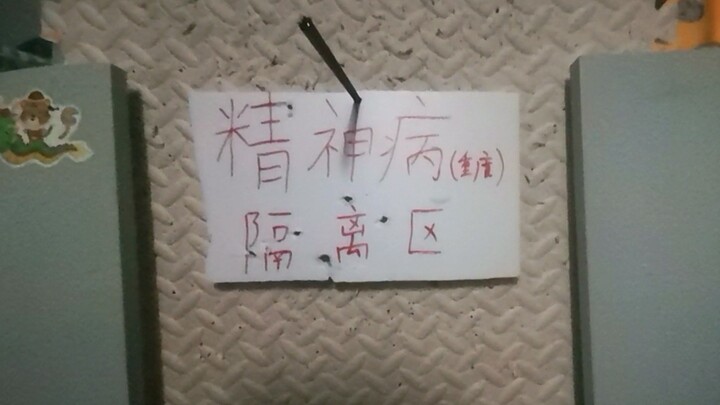 精神病(重度)
隔离区